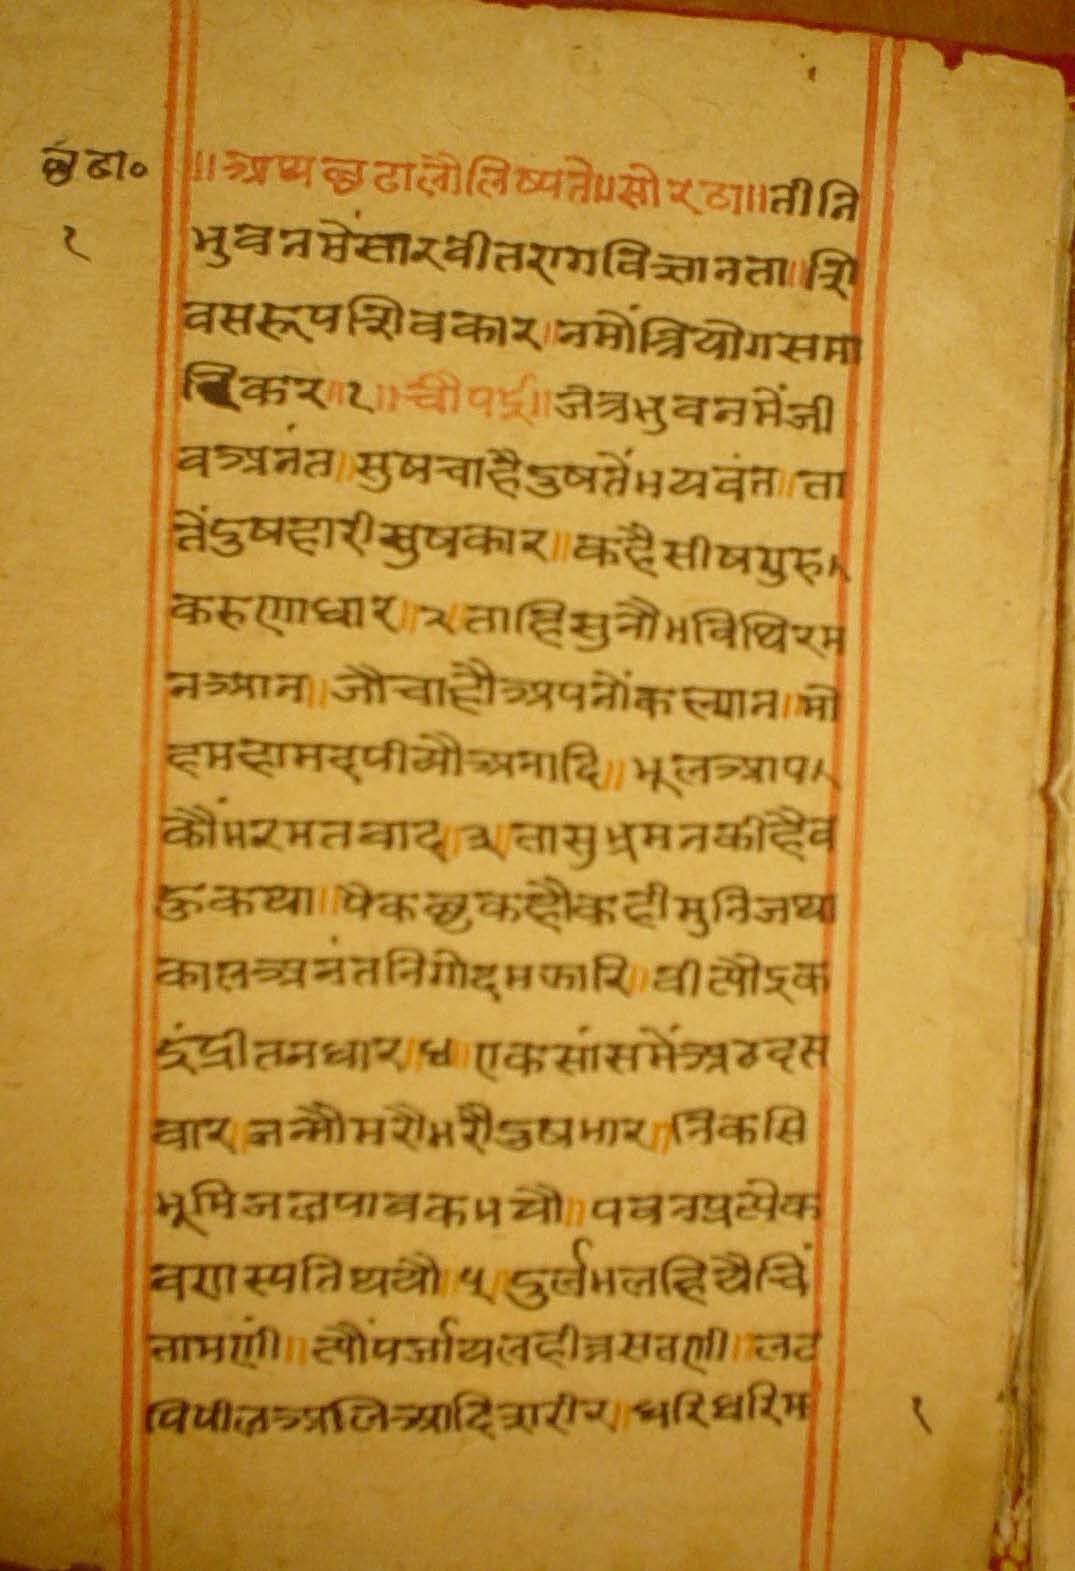 छ ढा॰
॥अथ छ ढालौ लिष्यते॥सोरठा॥तीनि
१
भुवनमेंसारवीतरागविज्ञानता॥शि
वसरूपशिवकार॥नमौंत्रियोगसमा
रिकर॥१॥चौपई॥जेत्रभुवनमेंजी
वअनंत॥सुषचाहैदुषतेंभयवंत॥ता
तेंदुषहारीसुषकार॥कहैसीषगुरु
करुणाधार॥२॥ताहिसुनौभविथिरम
नआन॥जौचाहौअपनौंकल्यान॥मो
हमहामदपीयौअनादि॥भूलआप
कौंभरमतवाद॥३॥तासुभ्रमनकीहैव
हुकथा॥पैकछुकहौंकहीमुनिजथा
कालअनंतनिगोदमझारि॥वीत्यौइक
इंद्रीतनधार॥४॥एकसांसमेंअठदस
वार॥जन्मौमरौभरौदुषभार॥निकसि
भूमिजलपावकभयौ॥पवनप्रत्येक
वणस्पतिथयौ॥५॥दुर्लभलहियैचिं
तामणी॥त्यौंपर्जायलहीत्रसतणी॥लट
पिपीलअलिआदिशरीर॥धरिधरिम
१